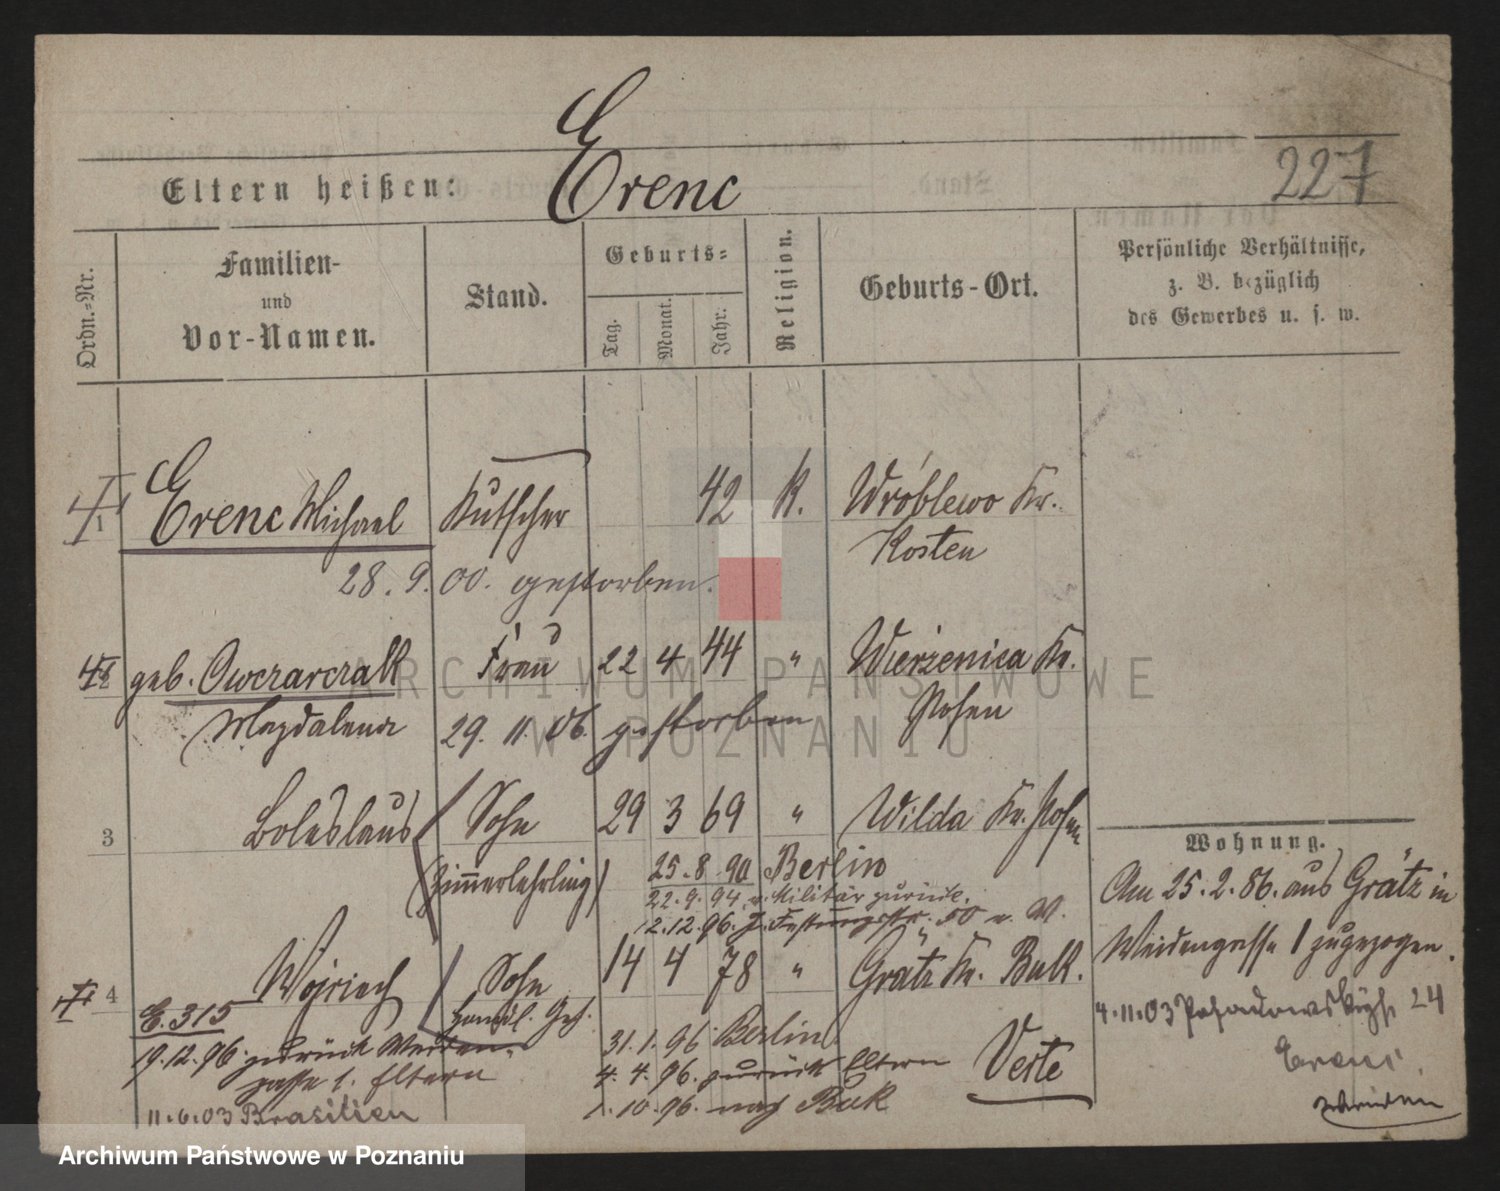 Erenc
Eltern heißen:
227
Ordn.-Nr.
Familien-
und
Vor-Namen.
Stand.
Geburts-
Tag.
Monat.
Jahr.
Religion.
Geburts-Ort.
Persönliche Verhältnisse,
z. B. bezüglich
des Gewerbes u. s. w.
1 Erenc Michael Kutscher 42 K. Wróblewo Kr.
Kosten
28. 9. 00. gestorben.
geb. Owczarczak Frau 22 4 44 " Wierzenica Kr.
Magdalena 29. 11. 06. gestorben Posen
3 Boleslaus Sohn 29 3 69 " Wilda Kr. Posen
(Zimmerlehrling) 25. 8. 90 Berlin
22. 9. 94 v. Militär zurück.
12.12.96. Festungsstr. 50
4 Wojciech Sohn 14 4 78 " Grätz Kr. Buk.
E. 315
19.12.96. zurück Weiden-
gasse 1. Eltern
11.6.03 Brasilien
31. 1. 96 Berlin
4. 4. 96. zurück Eltern
1. 10. 96. nach Buk
Verte
Wohnung.
Am 25. 2. 86. aus Grätz in
Weidengasse 1 zugezogen.
4. 11. 03 24
ARCHIWUM PAŃSTWOWE
W POZNANIU
Archiwum Państwowe w Poznaniu